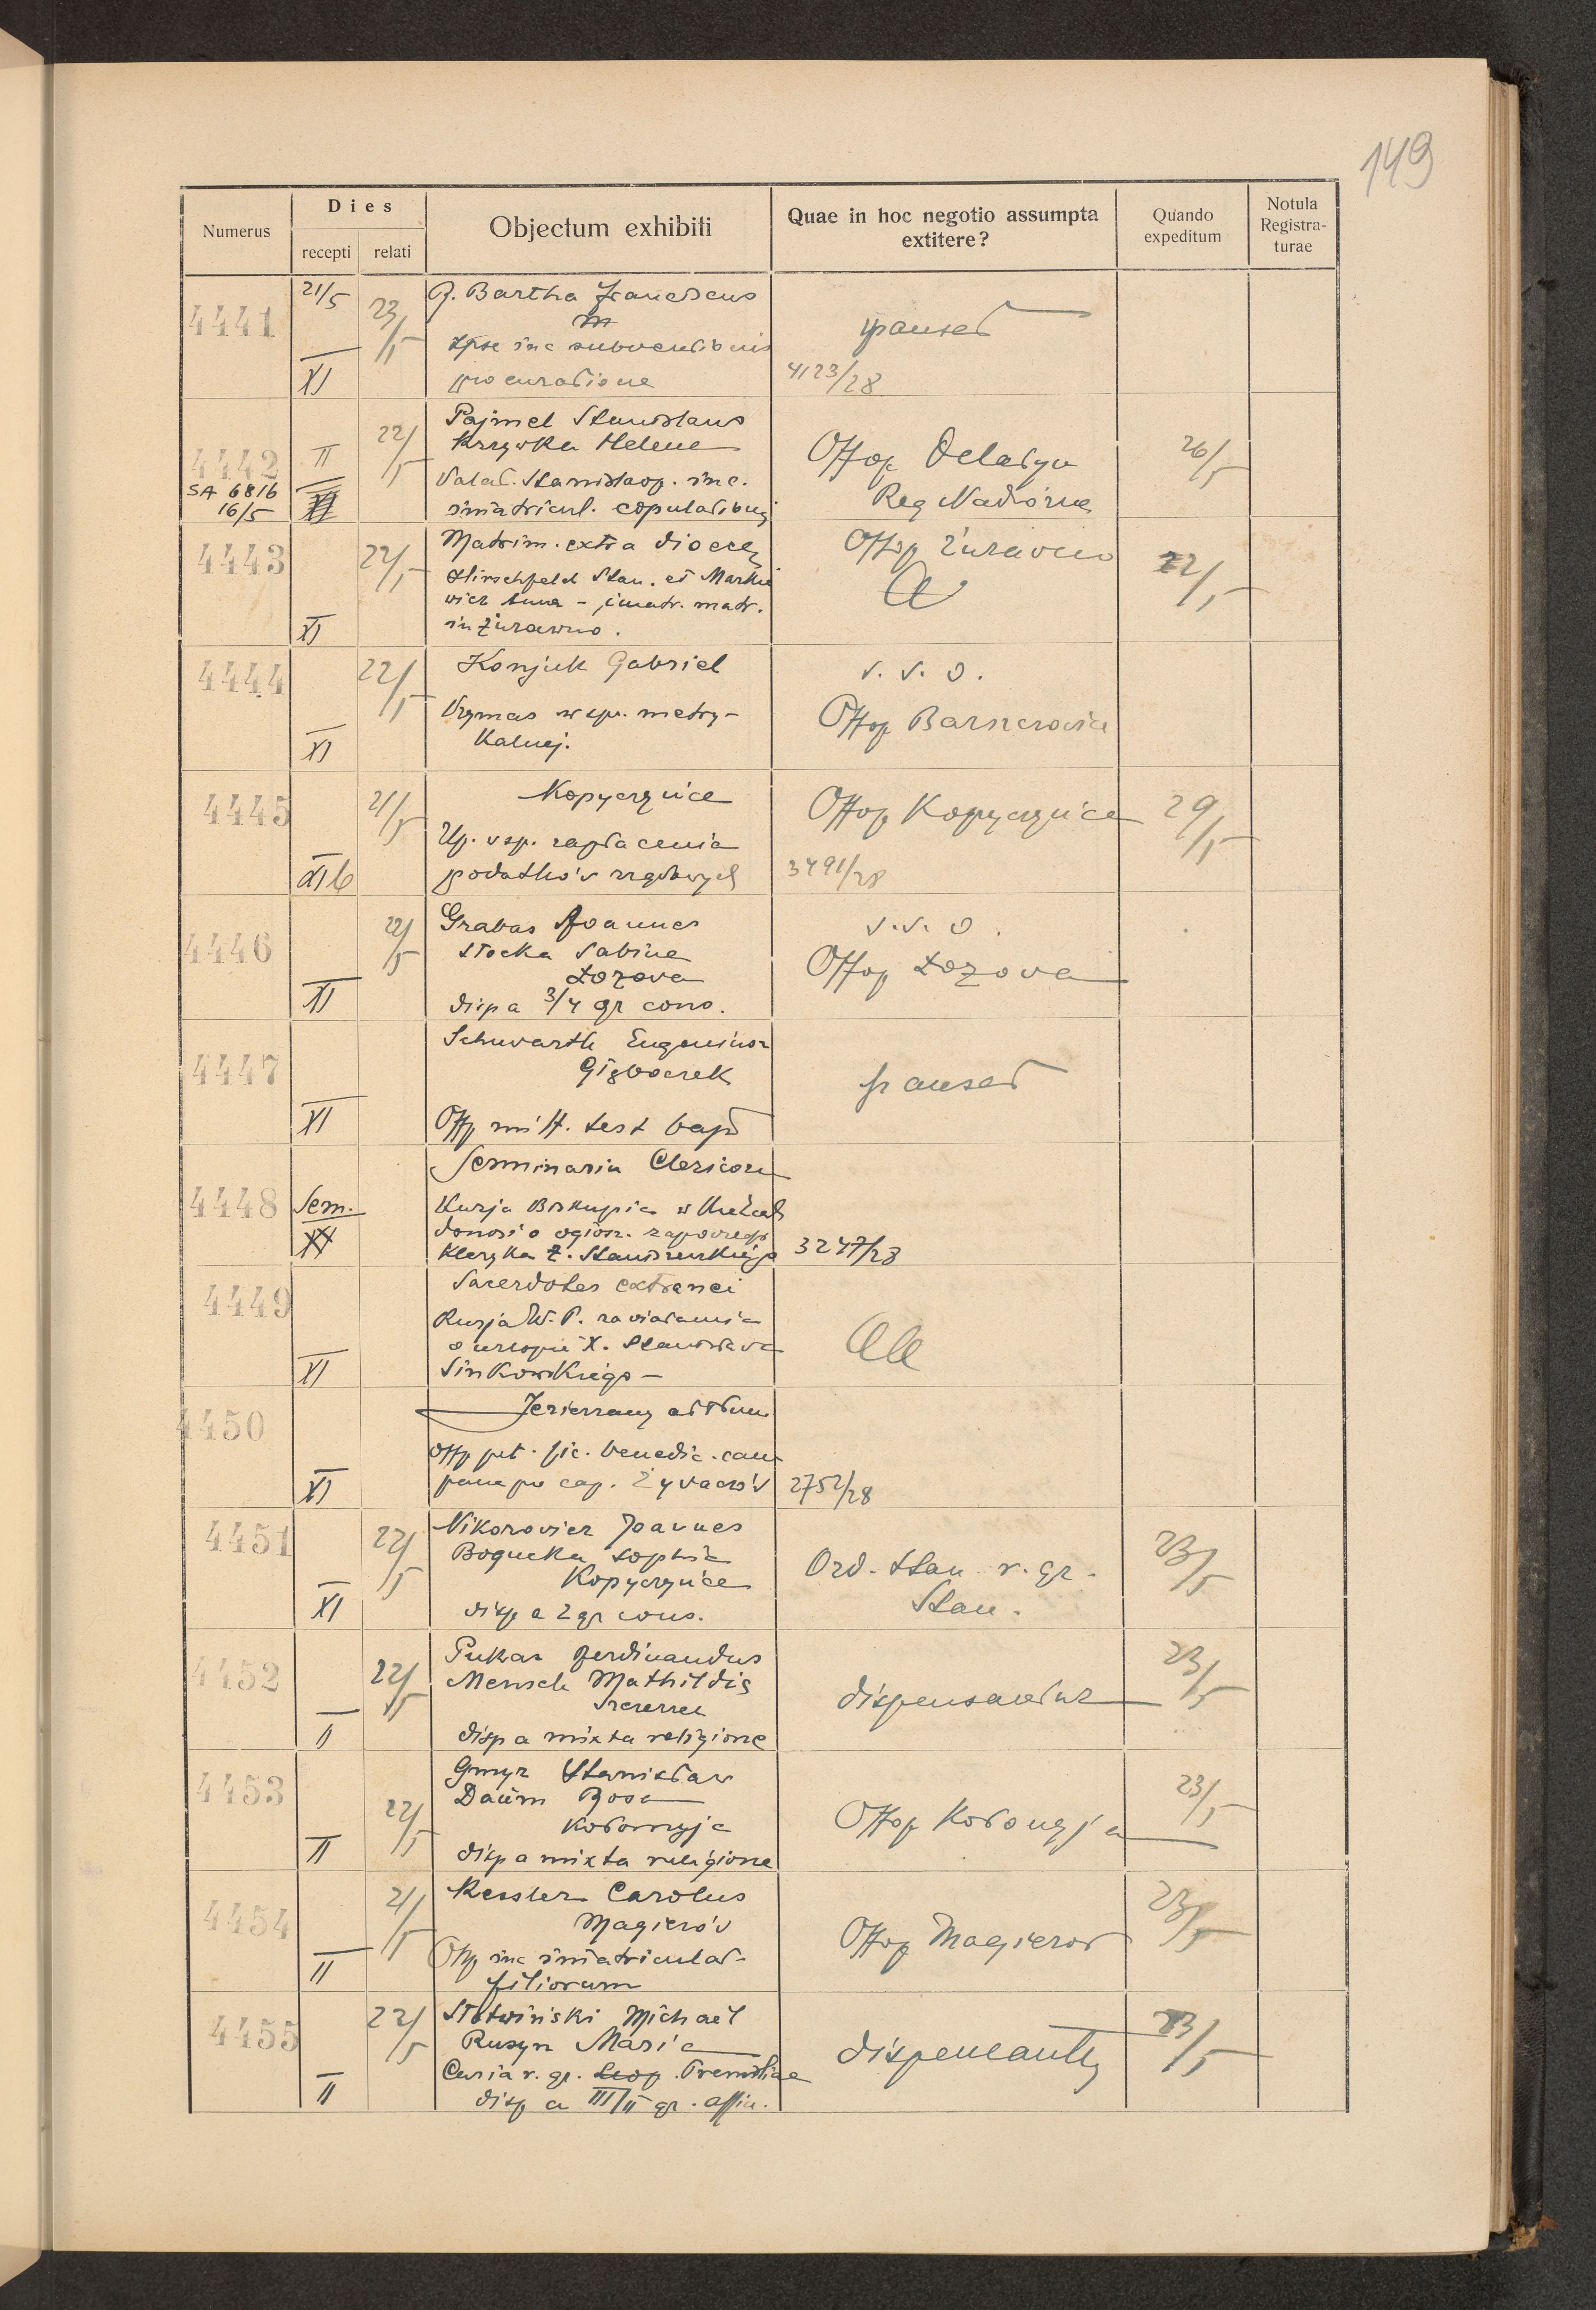 149
Numerus
Dies
recepti
relati
Objectum exhibiti
Quae in hoc negotio assumpta
extitere?
Quando
expeditum
Notula
Registra-
turae
4441
21/5
23/5
XI
J. Bartha Franciscus
ipse inc subventionis
procuratione
pauset
4123/28
4442
SA 6816
16/5
II
22/5
Pajmel Stanislaus
Krzywka Helene
Palat. Stanislaop. inc.
imatricul. copulationis
Offop Delatyn
Reg Nadwórna
26/5
4443
XI
22/5
Matrim. extra dioeces
Hirschfeld Stan. et Markie
wicz Anna - imatr. matr.
in Żurawno.
Offop Żurawno
22/5
4444
XI
22/5
Konjuk Gabriel
w spr. metry-
kalnej.
V. S. O.
Offop
4445
XIb
21/5
Kopyczyńce
Up. wsp. zapłacenia
podatków
Offop Kopyczyńce
3491/28
29/5
4446
XI
22/5
Grabas Joannes
Stocka Sabina
Łozova
disp a 3/4 gr cons.
V. S. O.
Offop Łozova
4447
XI
Schwarth
Offp mitt. test bapt
pauset
4448
Sem.
Seminaria Clericorum
Kurja Biskupia w
donosi o
Kleryka
3247/28
4449
XI
Sacerdotes extranei
Kurja W. P. zawiadamia
o urlopie X. Stanisława
Sinkowskiego -
4450
XI
Jezierzany ad Tłum.
Offp pet. fic. benedic. cam
pana pro cap. Żywaczów
2752/28
4451
XI
22/5
Nikorovicz Joannes
Bogucka Sophia
Kopyczyńce
disp a 2 gr cons.
Ord. Stan r. gr.
Stan.
23/5
4452
II
22/5
Pukar Ferdinandus
Mensch Mathildis
Szczerzec
disp a mixta religione
dispensantur
23/5
4453
II
22/5
Gmyr Stanisław
Daum Rosa
Kołomyja
disp a mixta religione
Offop Kołomyja
23/5
4454
II
21/5
Kessler Carolus
Magierów
Offp inc imatriculat-
filiorum
Offop Magierow
23/5
4455
II
22/5
Słotwiński Michaël
Rusyn Maria
Curia r. gr. Leop. Premisliae
disp a III/II gr. affin.
dispensantur
23/5